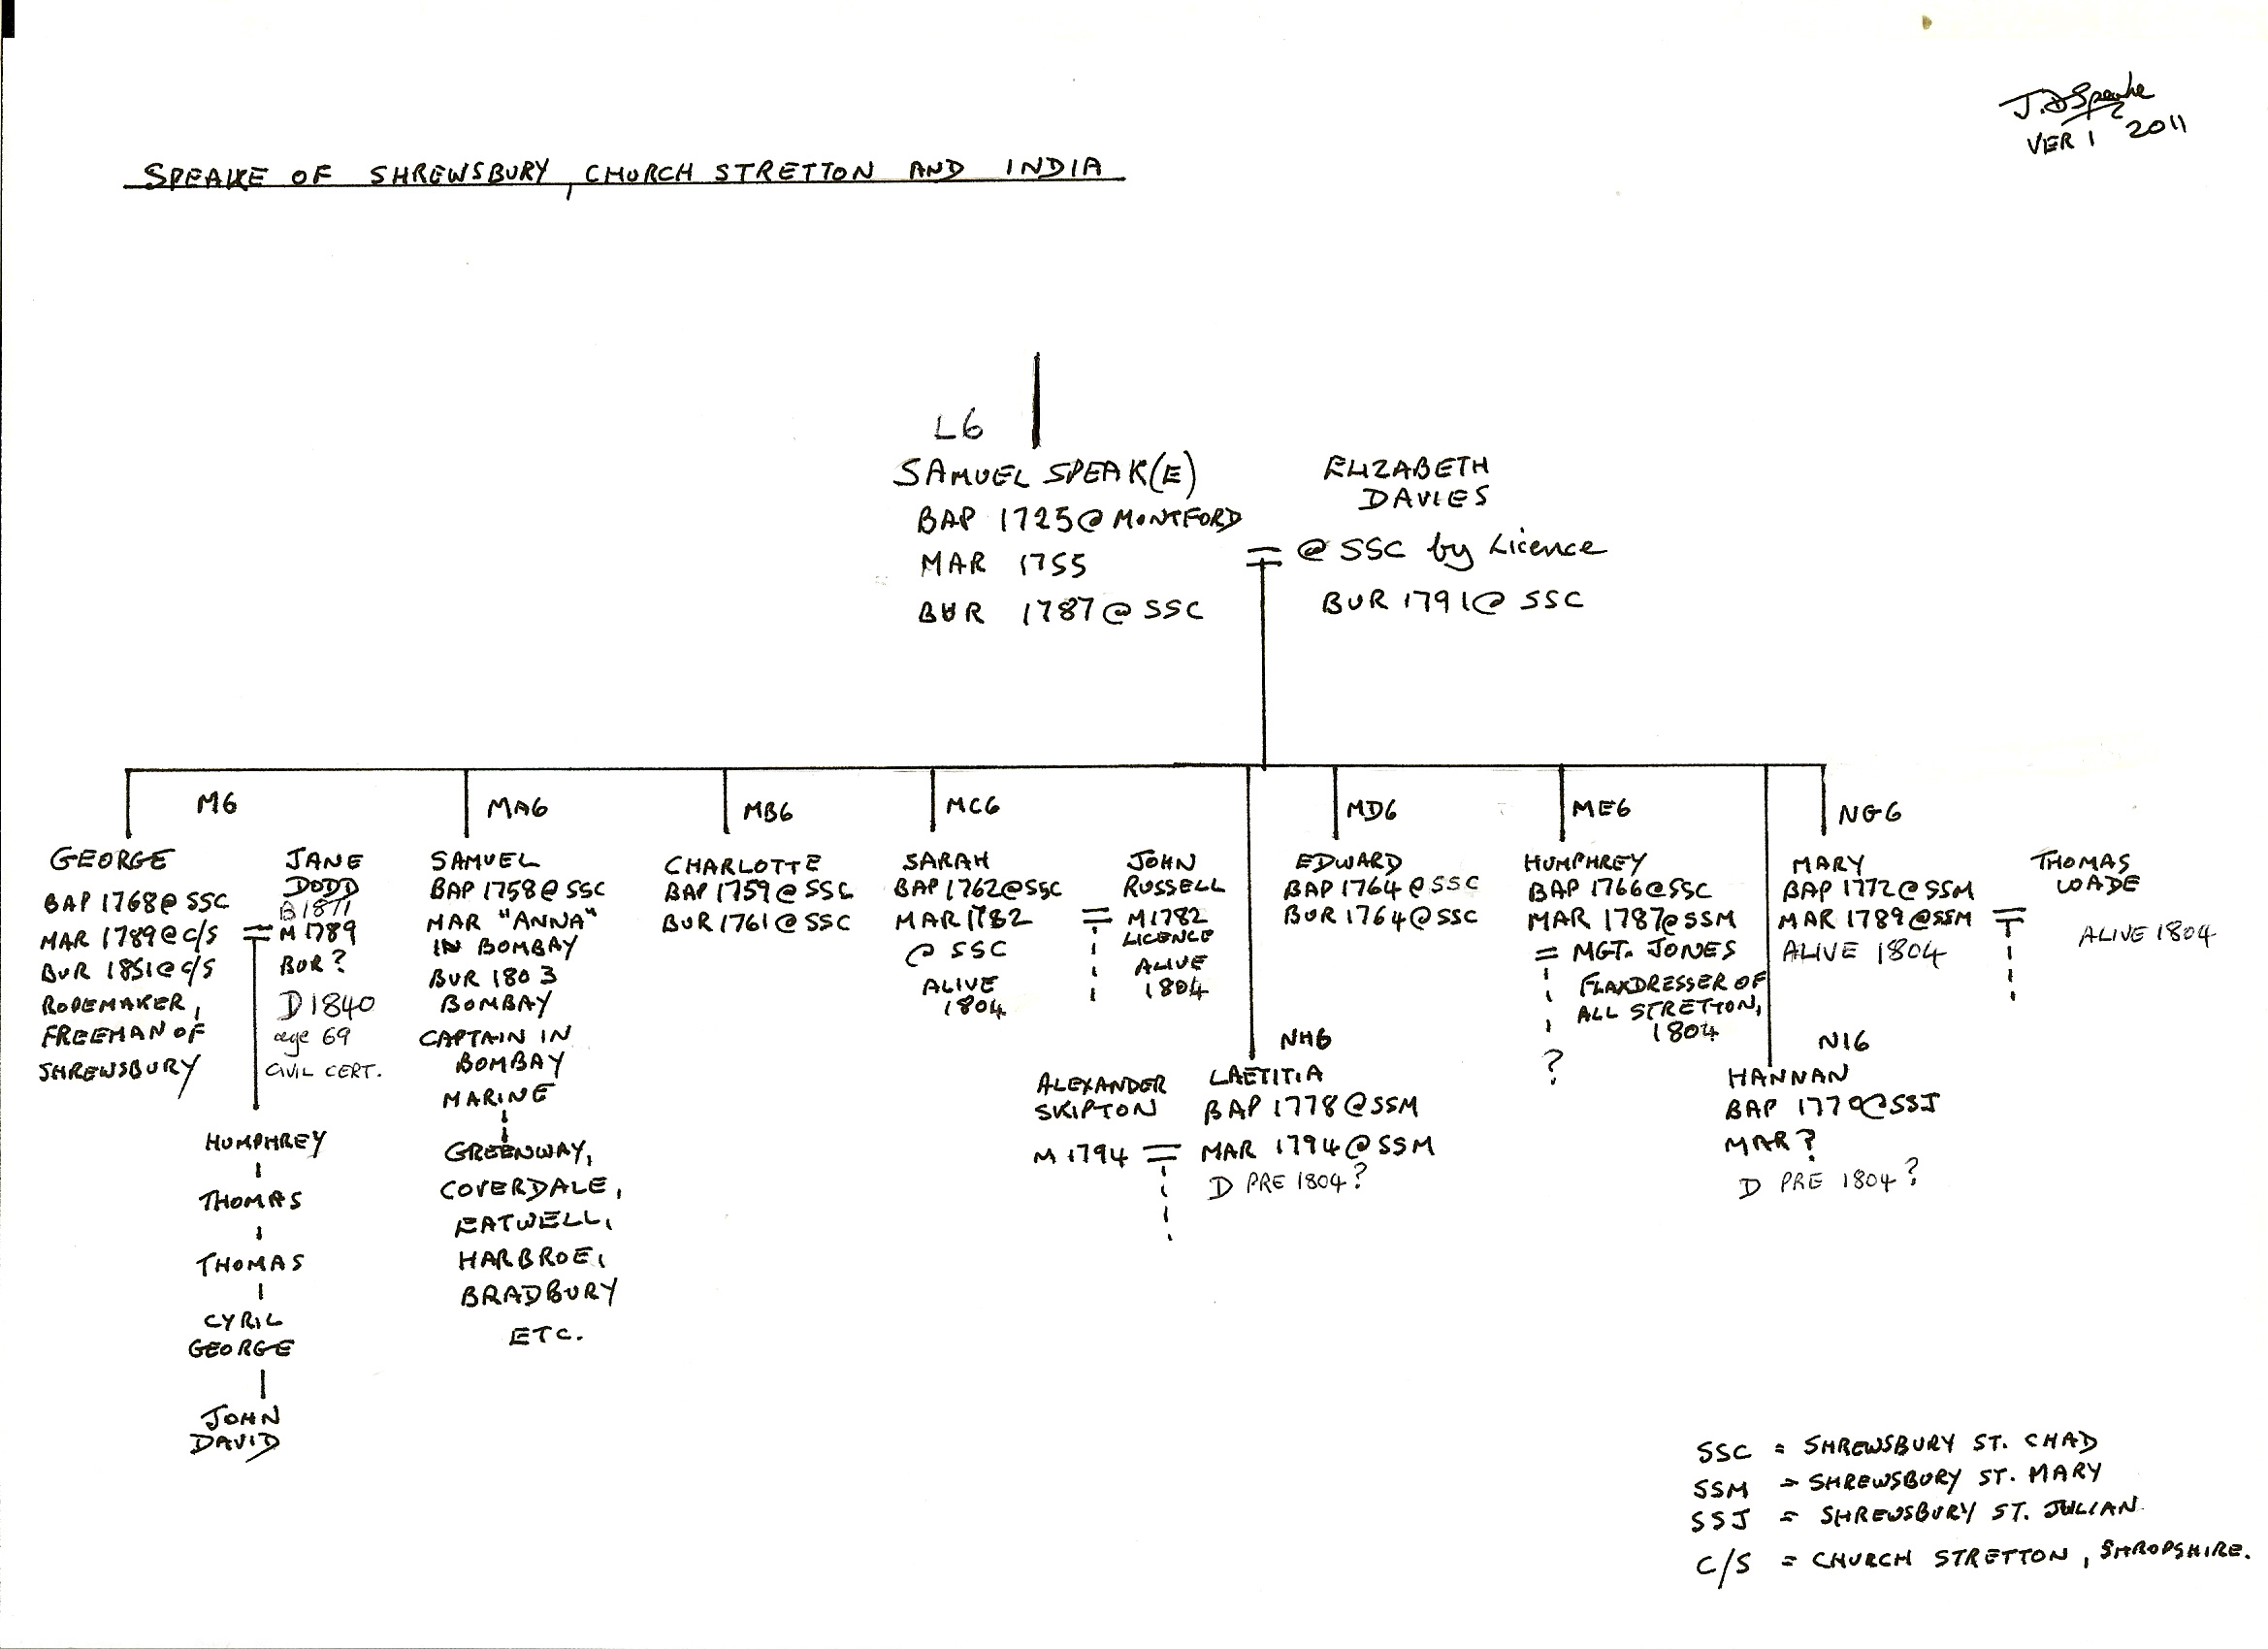 J.D Speake
VER 1 2011
SPEAKE OF SHREWSBURY, CHURCH STRETTON AND INDIA
L6
SAMUEL SPEAK(E)
BAP 1725 @ MONTFORD
MAR 1755
BUR 1787 @ SSC
ELIZABETH
DAVIES
= @ SSC by Licence
BUR 1791 @ SSC
M6
GEORGE
BAP 1768 @ SSC
MAR 1789 @ C/S
BUR 1851 @ C/S
ROPEMAKER,
FREEMAN OF
SHREWSBURY
JANE
DODD
= M 1789
BUR?
D 1840
age 69
CIVIL CERT.
HUMPHREY
THOMAS
THOMAS
CYRIL
GEORGE
JOHN
DAVID
MA6
SAMUEL
BAP 1758 @ SSC
MAR "ANNA"
IN BOMBAY
BUR 1803
BOMBAY
CAPTAIN IN
BOMBAY
MARINE
GREENWAY,
COVERDALE,
EATWELL,
HARBROE,
BRADBURY
ETC.
MB6
CHARLOTTE
BAP 1759 @ SSC
BUR 1761 @ SSC
MC6
SARAH
BAP 1762 @ SSC
MAR 1782
@ SSC
ALIVE
1804
JOHN
RUSSELL
= M 1782
LICENCE
ALIVE
1804
NH6
ALEXANDER
SKIPTON
M 1794 =
LAETITIA
BAP 1778 @ SSM
MAR 1794 @ SSM
D PRE 1804?
MD6
EDWARD
BAP 1764 @ SSC
BUR 1764 @ SSC
ME6
HUMPHREY
BAP 1766 @ SSC
MAR 1787 @ SSM
= MGT. JONES
FLAXDRESSER OF
ALL STRETTON,
1804
?
NI6
HANNAN
BAP 1770 @ SSJ
MAR?
D PRE 1804?
NG6
MARY
BAP 1772 @ SSM
MAR 1789 @ SSM =
ALIVE 1804
THOMAS
WADE
ALIVE 1804
SSC = SHREWSBURY ST. CHAD
SSM = SHREWSBURY ST. MARY
SSJ = SHREWSBURY ST. JULIAN
C/S = CHURCH STRETTON, SHROPSHIRE.